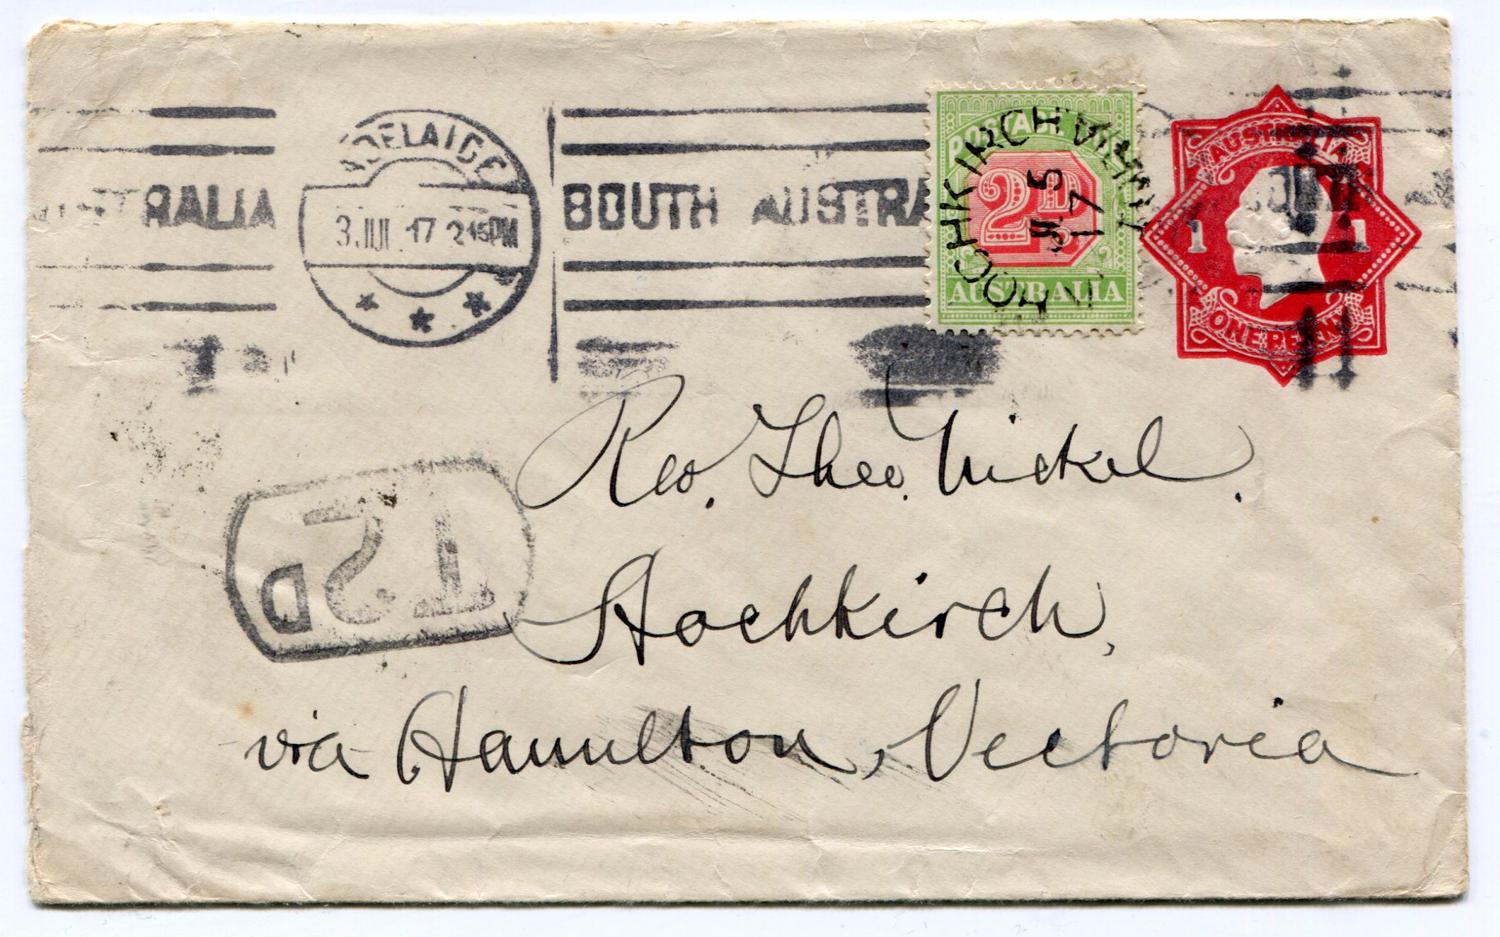 RALIA
ADELAIDE
3 JUL 17 2 15 PM
SOUTH AUSTRA
POSTA
2D
AUSTRALIA
HOCHKIRCH VICTO
JL 5
17
AUSTRALIA
1 1
ONE PENNY
T2D
Rev. Theo. Nickel.
Hochkirch,
via Hamilton, Victoria